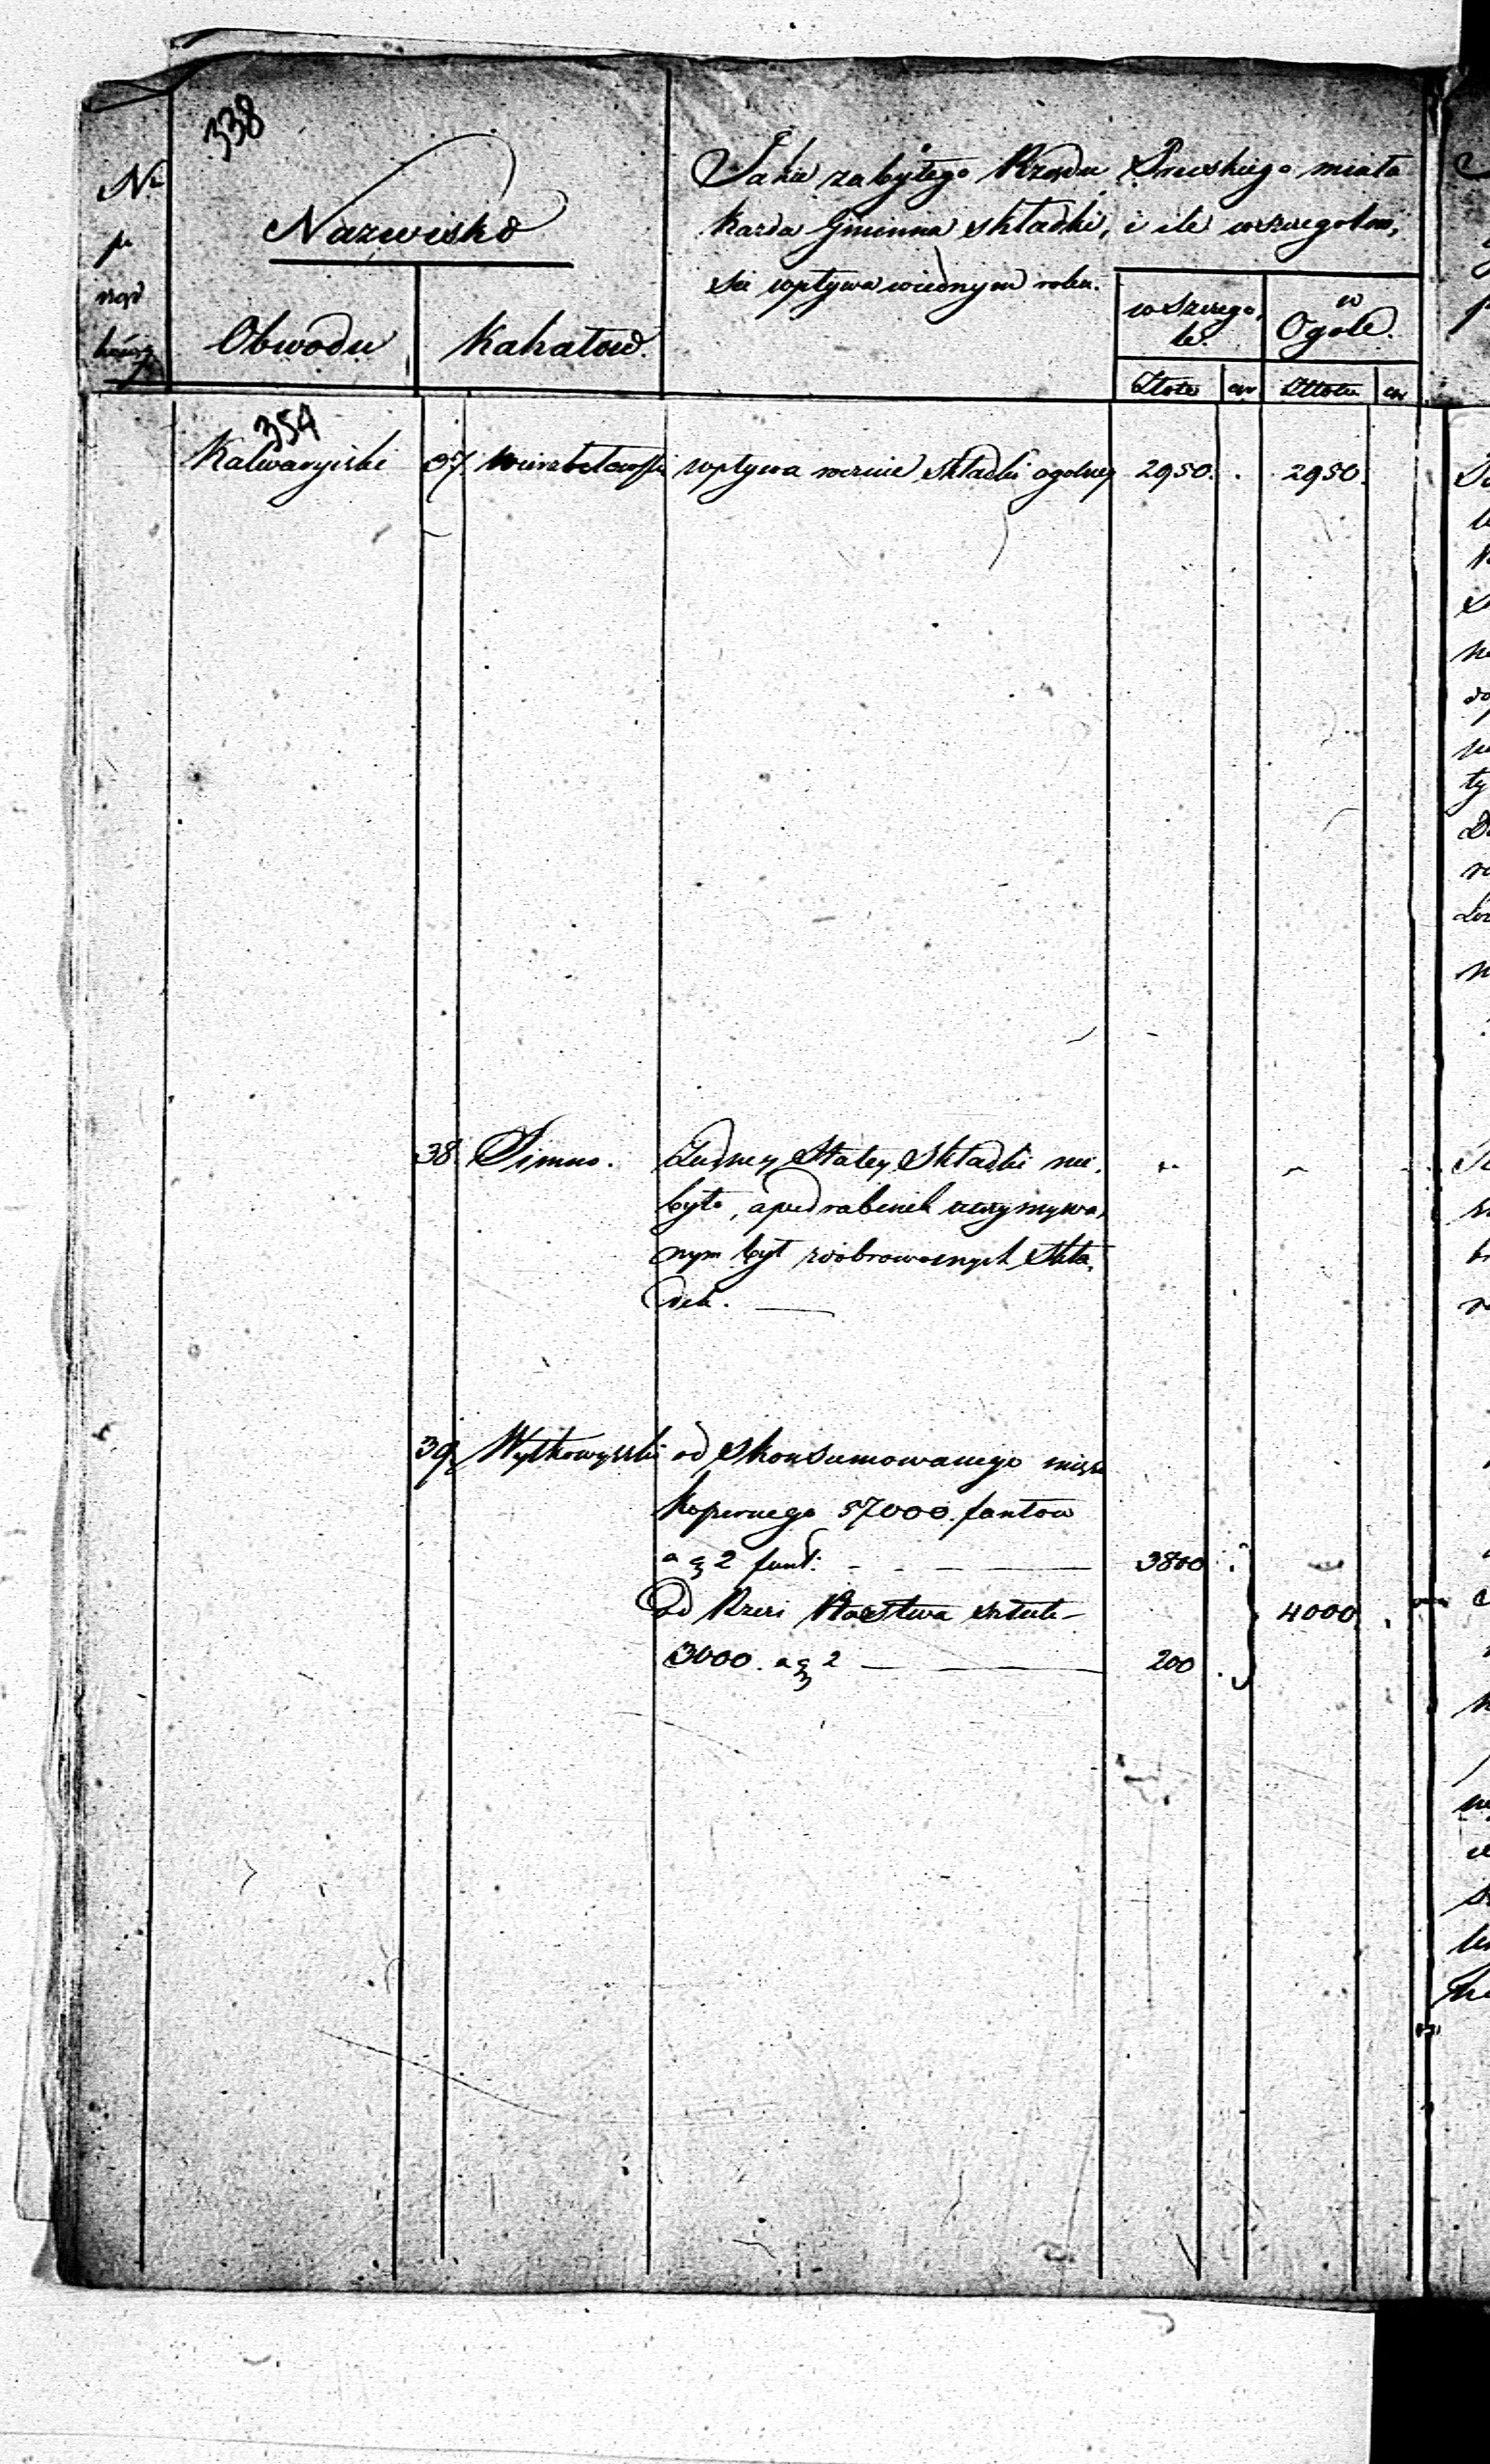 338
Nr
p
rząd
Nazwisko
Obwodu
Kahałow.
Jakie za byłego Rządu Pruskiego miała
Każda Gminna składki, i ile wszczegolno,
sci wpływa wiednym roku.
w szczego,
le.
w
Ogole.
Złote
gr
Złote
gr
354
Kalwaryiski 37 Wierzbołowski wpływa rocznie składki ogolney 2950. . 2950.
38. Simno. Żadney Stałey Składki nie,
było, a podrabinek utrzymywa,
nym był zdobrowolnych skła,
dek.
39. Wyłkowyski od skonsumowanego mięsa
Koszernego 57000. funtow
a g 2 funt. 3800 .
Od Rzezi Ptastwa sztuk 4000 .
3000. a g 2 200 .